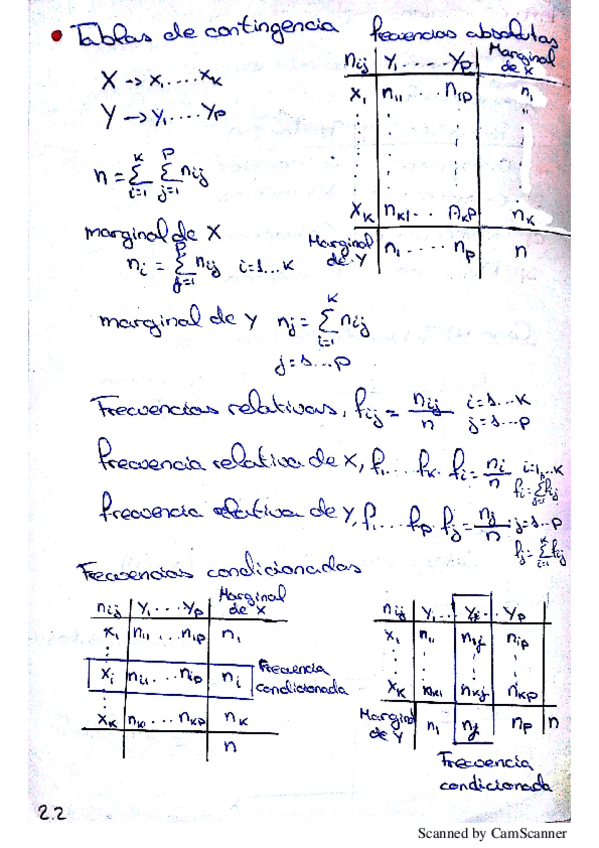 • Tablas de contingencia
frecuencias absolutas
X → x₁ .... xₖ
Y → y₁ .... yₚ
n = Σᵢ₌₁ᴷ Σⱼ₌₁ᴾ nᵢⱼ
nᵢⱼ | y₁ ..... yₚ | Marginal de X
x₁ | n₁₁ .. n₁ₚ | n₁
xₖ | nₖ₁ .. nₖₚ | nₖ
Marginal de Y | n₁ ..... nₚ | n
marginal de X
nᵢ = Σⱼ₌₁ᴾ nᵢⱼ i=1...K
marginal de Y nⱼ = Σᵢ₌₁ᴷ nᵢⱼ
j=1...P
Frecuencias relativas, fᵢⱼ = nᵢⱼ/n i=1...K
j=1...P
frecuencia relativa de X, f₁.... fₖ. fᵢ = nᵢ/n i=1,..K
fᵢ = Σⱼ₌₁ᴾ fᵢⱼ
frecuencia relativa de Y, f₁.... fₚ. fⱼ = nⱼ/n j=1..P
fⱼ = Σᵢ₌₁ᴷ fᵢⱼ
Frecuencias condicionadas
nᵢⱼ | y₁ ... yₚ | Marginal de X
x₁ | n₁₁ ... n₁ₚ | n₁
xᵢ | nᵢ₁ ... nᵢₚ | nᵢ
Frecuencia
condicionada
xₖ | nₖ₁ ... nₖₚ | nₖ
n
nᵢⱼ | y₁ .. yⱼ .. yₚ
x₁ | n₁₁ n₁ⱼ n₁ₚ
xₖ | nₖ₁ nₖⱼ nₖₚ
Marginal de Y | n₁ nⱼ nₚ | n
Frecuencia
condicionada
2.2
Scanned by CamScanner